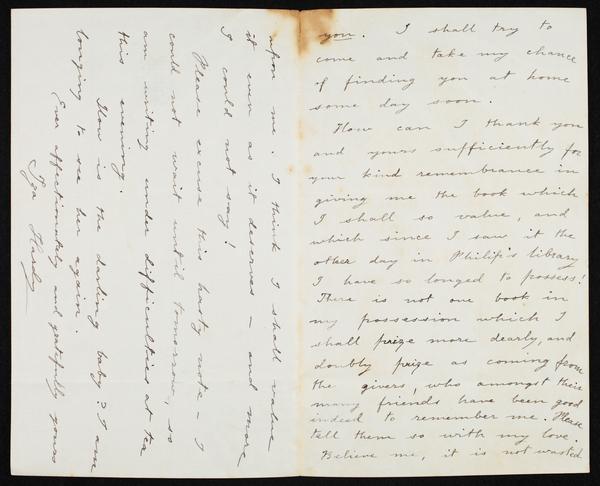 you. I shall try to
come and take my chance
of finding you at home
some day soon.
How can I thank you
and yours sufficiently for
your kind remembrance in
giving me the book which
I shall so value, and
which since I saw it the
other day in Philip's library
I have so longed to possess!
There is not one book in
my possession which I
shall prize more dearly, and
doubly prize as coming from
the givers, who amongst their
many friends have been good
indeed to remember me. Please
tell them so with my love.
Believe me, it is not wasted
upon me. I think I shall value
it even as it deserves – and more
I could not say!
Please excuse this hasty note – I
could not wait until tomorrow, so
am writing under difficulties at tea
this evening.
How is the darling baby? I am
longing to see her again.
Ever affectionately and gratefully yours
Iza Hardy